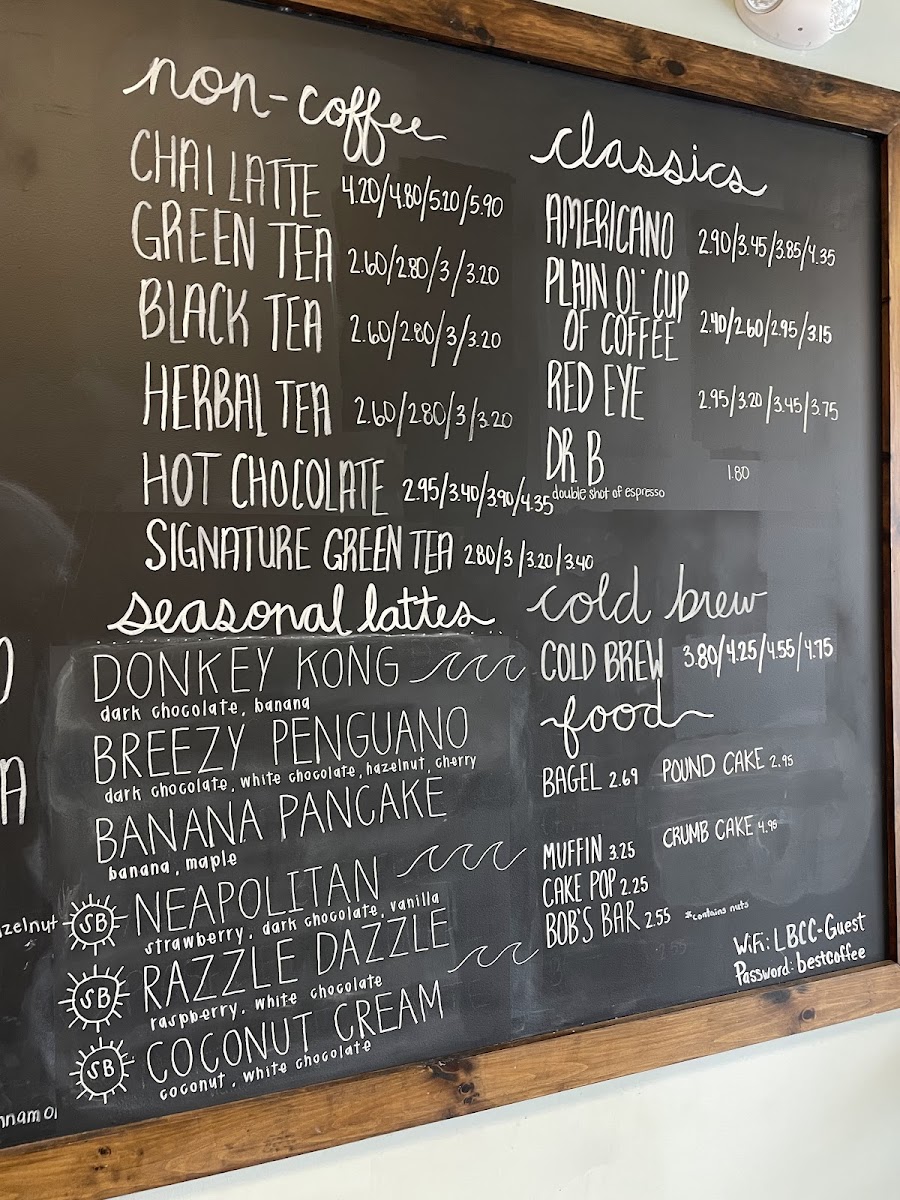 non-coffee
CHAI LATTE 4.20/4.80/5.20/5.90
GREEN TEA 2.60/2.80/3/3.20
BLACK TEA 2.60/2.80/3/3.20
HERBAL TEA 2.60/2.80/3/3.20
HOT CHOCOLATE 2.95/3.40/3.90/4.35
SIGNATURE GREEN TEA 2.80/3/3.20/3.40
seasonal lattes
DONKEY KONG
dark chocolate, banana
BREEZY PENGUANO
dark chocolate, white chocolate, hazelnut, cherry
BANANA PANCAKE
banana, maple
SB NEAPOLITAN
strawberry, dark chocolate, vanilla
SB RAZZLE DAZZLE
raspberry, white chocolate
SB COCONUT CREAM
coconut, white chocolate
classics
AMERICANO 2.90/3.45/3.85/4.35
PLAIN OL' CUP
OF COFFEE 2.40/2.60/2.95/3.15
RED EYE 2.95/3.20/3.45/3.75
DR B 1.80
double shot of espresso
cold brew
COLD BREW 3.80/4.25/4.55/4.75
food
BAGEL 2.69 POUND CAKE 2.95
MUFFIN 3.25 CRUMB CAKE 4.95
CAKE POP 2.25
BOB'S BAR 2.55 *contains nuts
WiFi: LBCC-Guest
Password: bestcoffee